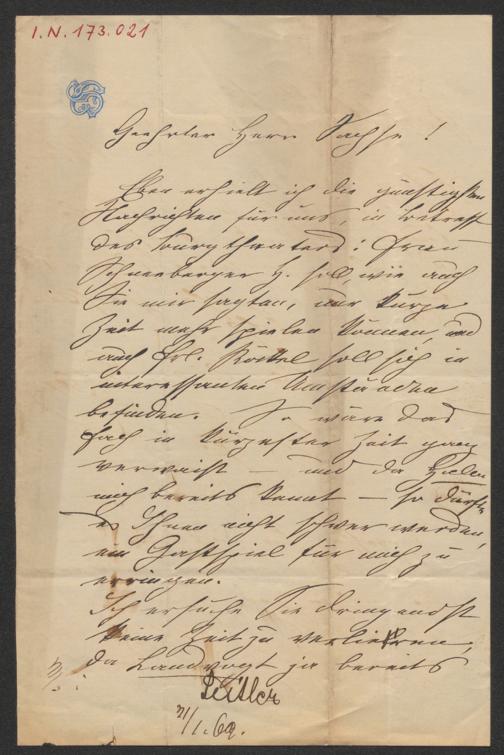 I.N. 173.021
Geehrter Herr Sachse!
Eben erhielt ich die günstigsten
Nachrichten für uns, in betreff
des Burgtheaters: Frau
Schneeberger H. soll, wie auch
Sie mir sagten, nur kurze
Zeit mehr spielen können, und
auch Frl. soll sich in
interessanten Umständen
befinden. So wäre das
Fach in kürzester Zeit ganz
verwaist — und da
mich bereits kennt — so dürfte
es Ihnen nicht schwer werden,
ein Gastspiel für mich zu
erringen.
Ich ersuche Sie dringendst
keine Zeit zu verlieren,
da Landvogt ja bereits
Zeitler
21/1.69.